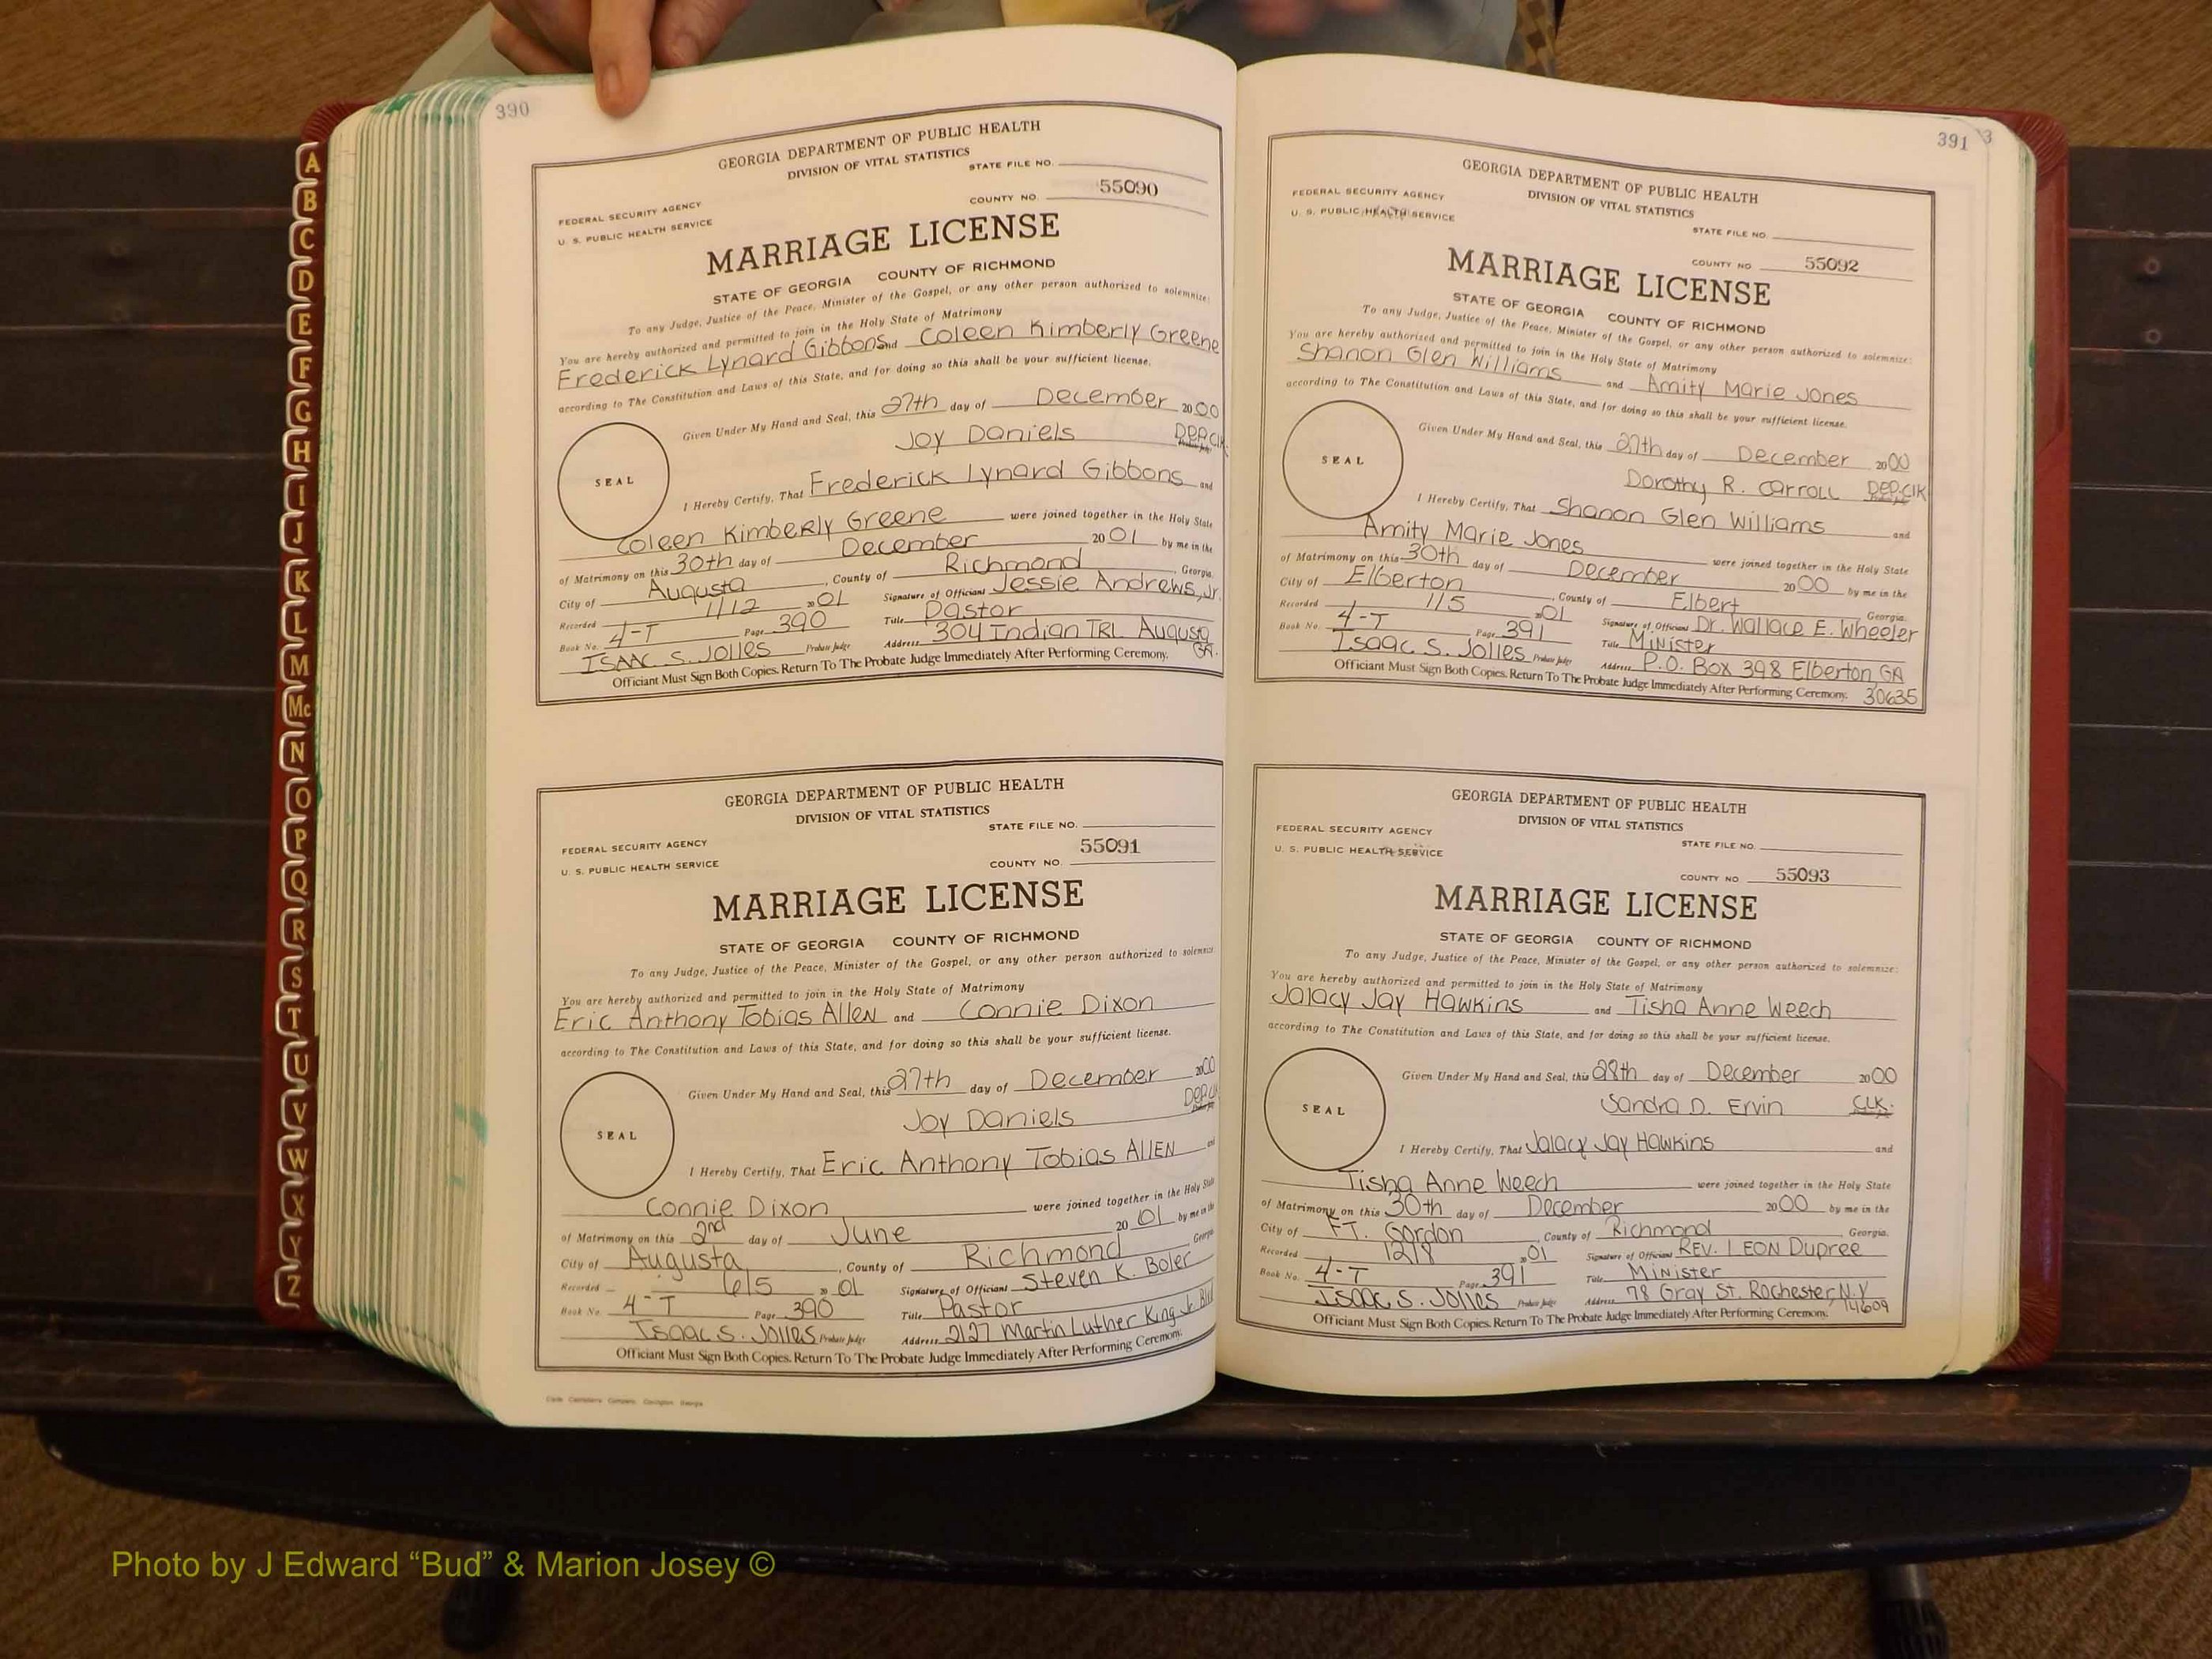 390
GEORGIA DEPARTMENT OF PUBLIC HEALTH
DIVISION OF VITAL STATISTICS
STATE FILE NO.
FEDERAL SECURITY AGENCY
U. S. PUBLIC HEALTH SERVICE
COUNTY NO. 55090
MARRIAGE LICENSE
STATE OF GEORGIA COUNTY OF RICHMOND
To any Judge, Justice of the Peace, Minister of the Gospel, or any other person authorized to solemnize:
You are hereby authorized and permitted to join in the Holy State of Matrimony
Frederick Lynard Gibbons and Coleen Kimberly Greene
according to The Constitution and Laws of this State, and for doing so this shall be your sufficient license.
Given Under My Hand and Seal, this 27th day of December 2000
Joy Daniels DEP. Clk.
SEAL
I Hereby Certify, That Frederick Lynard Gibbons and
Coleen Kimberly Greene were joined together in the Holy State
of Matrimony on this 30th day of December 2001 by me in the
City of Augusta, County of Richmond, Georgia.
Recorded 1/12 2001 Signature of Officiant Jessie Andrews, Jr.
Book No. 4-T Page 390 Title Pastor
ISAAC S. JOLLES Probate Judge Address 304 Indian TRL Augusta GA.
Officiant Must Sign Both Copies. Return To The Probate Judge Immediately After Performing Ceremony.
GEORGIA DEPARTMENT OF PUBLIC HEALTH
DIVISION OF VITAL STATISTICS
STATE FILE NO.
FEDERAL SECURITY AGENCY
U. S. PUBLIC HEALTH SERVICE
COUNTY NO. 55091
MARRIAGE LICENSE
STATE OF GEORGIA COUNTY OF RICHMOND
To any Judge, Justice of the Peace, Minister of the Gospel, or any other person authorized to solemnize
You are hereby authorized and permitted to join in the Holy State of Matrimony
Eric Anthony Tobias Allen and Connie Dixon
according to The Constitution and Laws of this State, and for doing so this shall be your sufficient license.
Given Under My Hand and Seal, this 27th day of December 2000
Joy Daniels
SEAL
I Hereby Certify, That Eric Anthony Tobias ALLEN and
Connie Dixon were joined together in the Holy State
of Matrimony on this 2nd day of June 2001 by me in the
City of Augusta, County of Richmond Georgia
Recorded 6/5 2001 Signature of Officiant Steven K. Boler
Book No. 4-T Page 390 Title Pastor
ISAAC S. JOLLES Probate Judge Address 2127 Martin Luther King Jr. Blvd
Officiant Must Sign Both Copies. Return To The Probate Judge Immediately After Performing Ceremony.
391
3
GEORGIA DEPARTMENT OF PUBLIC HEALTH
DIVISION OF VITAL STATISTICS
FEDERAL SECURITY AGENCY
U. S. PUBLIC HEALTH SERVICE
STATE FILE NO.
COUNTY NO. 55092
MARRIAGE LICENSE
STATE OF GEORGIA COUNTY OF RICHMOND
To any Judge, Justice of the Peace, Minister of the Gospel, or any other person authorized to solemnize:
You are hereby authorized and permitted to join in the Holy State of Matrimony
Shanon Glen Williams and Amity Marie Jones
according to The Constitution and Laws of this State, and for doing so this shall be your sufficient license.
Given Under My Hand and Seal, this 27th day of December 2000
Dorothy R. Carroll DEP. Clk
SEAL
I Hereby Certify, That Shanon Glen Williams and
Amity Marie Jones were joined together in the Holy State
of Matrimony on this 30th day of December 2000 by me in the
City of Elberton, County of Elbert Georgia.
Recorded 1/5 2001 Signature of Officiant Dr. Wallace E. Wheeler
Book No. 4-T Page 391 Title Minister
ISAAC S. JOLLES Probate Judge Address P.O. Box 398 Elberton, GA
Officiant Must Sign Both Copies. Return To The Probate Judge Immediately After Performing Ceremony. 30635
GEORGIA DEPARTMENT OF PUBLIC HEALTH
DIVISION OF VITAL STATISTICS
FEDERAL SECURITY AGENCY
U. S. PUBLIC HEALTH SERVICE
STATE FILE NO.
COUNTY NO. 55093
MARRIAGE LICENSE
STATE OF GEORGIA COUNTY OF RICHMOND
To any Judge, Justice of the Peace, Minister of the Gospel, or any other person authorized to solemnize:
You are hereby authorized and permitted to join in the Holy State of Matrimony
Jalacy Jay Hawkins and Tisha Anne Weech
according to The Constitution and Laws of this State, and for doing so this shall be your sufficient license.
Given Under My Hand and Seal, this 28th day of December 2000
Sandra D. Ervin CLK.
SEAL
I Hereby Certify, That Jalacy Jay Hawkins and
Tisha Anne Weech were joined together in the Holy State
of Matrimony on this 30th day of December 2000 by me in the
City of FT. Gordon, County of Richmond Georgia.
Recorded 12/8 2001 Signature of Officiant REV. LEON Dupree
Book No. 4-T Page 391 Title Minister
ISAAC S. JOLLES Probate Judge Address 78 Gray St. Rochester, N.Y 14609
Officiant Must Sign Both Copies. Return To The Probate Judge Immediately After Performing Ceremony.
A
B
C
D
E
F
G
H
I
J
K
L
M
Mc
N
O
P
Q
R
S
T
U
V
W
X
Y
Z
Photo by J Edward “Bud” & Marion Josey ©